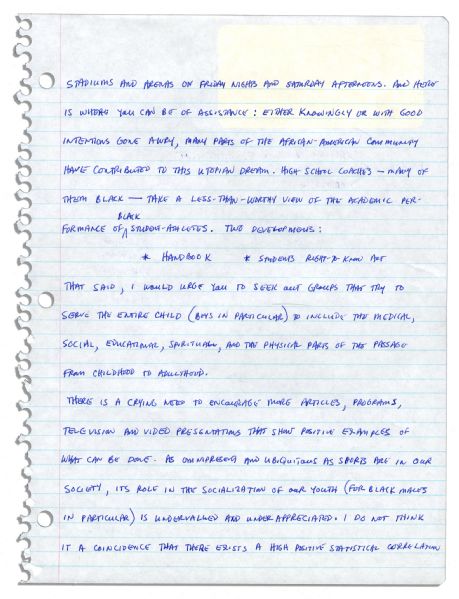 STADIUMS AND ARENAS ON FRIDAY NIGHTS AND SATURDAY AFTERNOONS. AND HERE
IS WHERE YOU CAN BE OF ASSISTANCE: EITHER KNOWINGLY OR WITH GOOD
INTENTIONS GONE AWRY, MANY PARTS OF THE AFRICAN-AMERICAN COMMUNITY
HAVE CONTRIBUTED TO THIS UTOPIAN DREAM. HIGH SCHOOL COACHES — MANY OF
THEM BLACK — TAKE A LESS-THAN-WORTHY VIEW OF THE ACADEMIC PER-
BLACK
FORMANCE OF ^ STUDENT-ATHLETES. TWO DEVELOPMENTS:
* HANDBOOK * STUDENTS RIGHT-TO-KNOW ACT
THAT SAID, I WOULD URGE YOU TO SEEK OUT GROUPS THAT TRY TO
SERVE THE ENTIRE CHILD (BOYS IN PARTICULAR) TO INCLUDE THE MEDICAL,
SOCIAL, EDUCATIONAL, SPIRITUAL, AND THE PHYSICAL PARTS OF THE PASSAGE
FROM CHILDHOOD TO ADULTHOOD.
THERE IS A CRYING NEED TO ENCOURAGE MORE ARTICLES, PROGRAMS,
TELEVISION AND VIDEO PRESENTATIONS THAT SHOW POSITIVE EXAMPLES OF
WHAT CAN BE DONE. AS OMNIPRESENT AND UBIQUITOUS AS SPORTS ARE IN OUR
SOCIETY, ITS ROLE IN THE SOCIALIZATION OF OUR YOUTH (FOR BLACK MALES
IN PARTICULAR) IS UNDERVALUED AND UNDERAPPRECIATED. I DO NOT THINK
IT A COINCIDENCE THAT THERE EXISTS A HIGH POSITIVE STATISTICAL CORRELATION